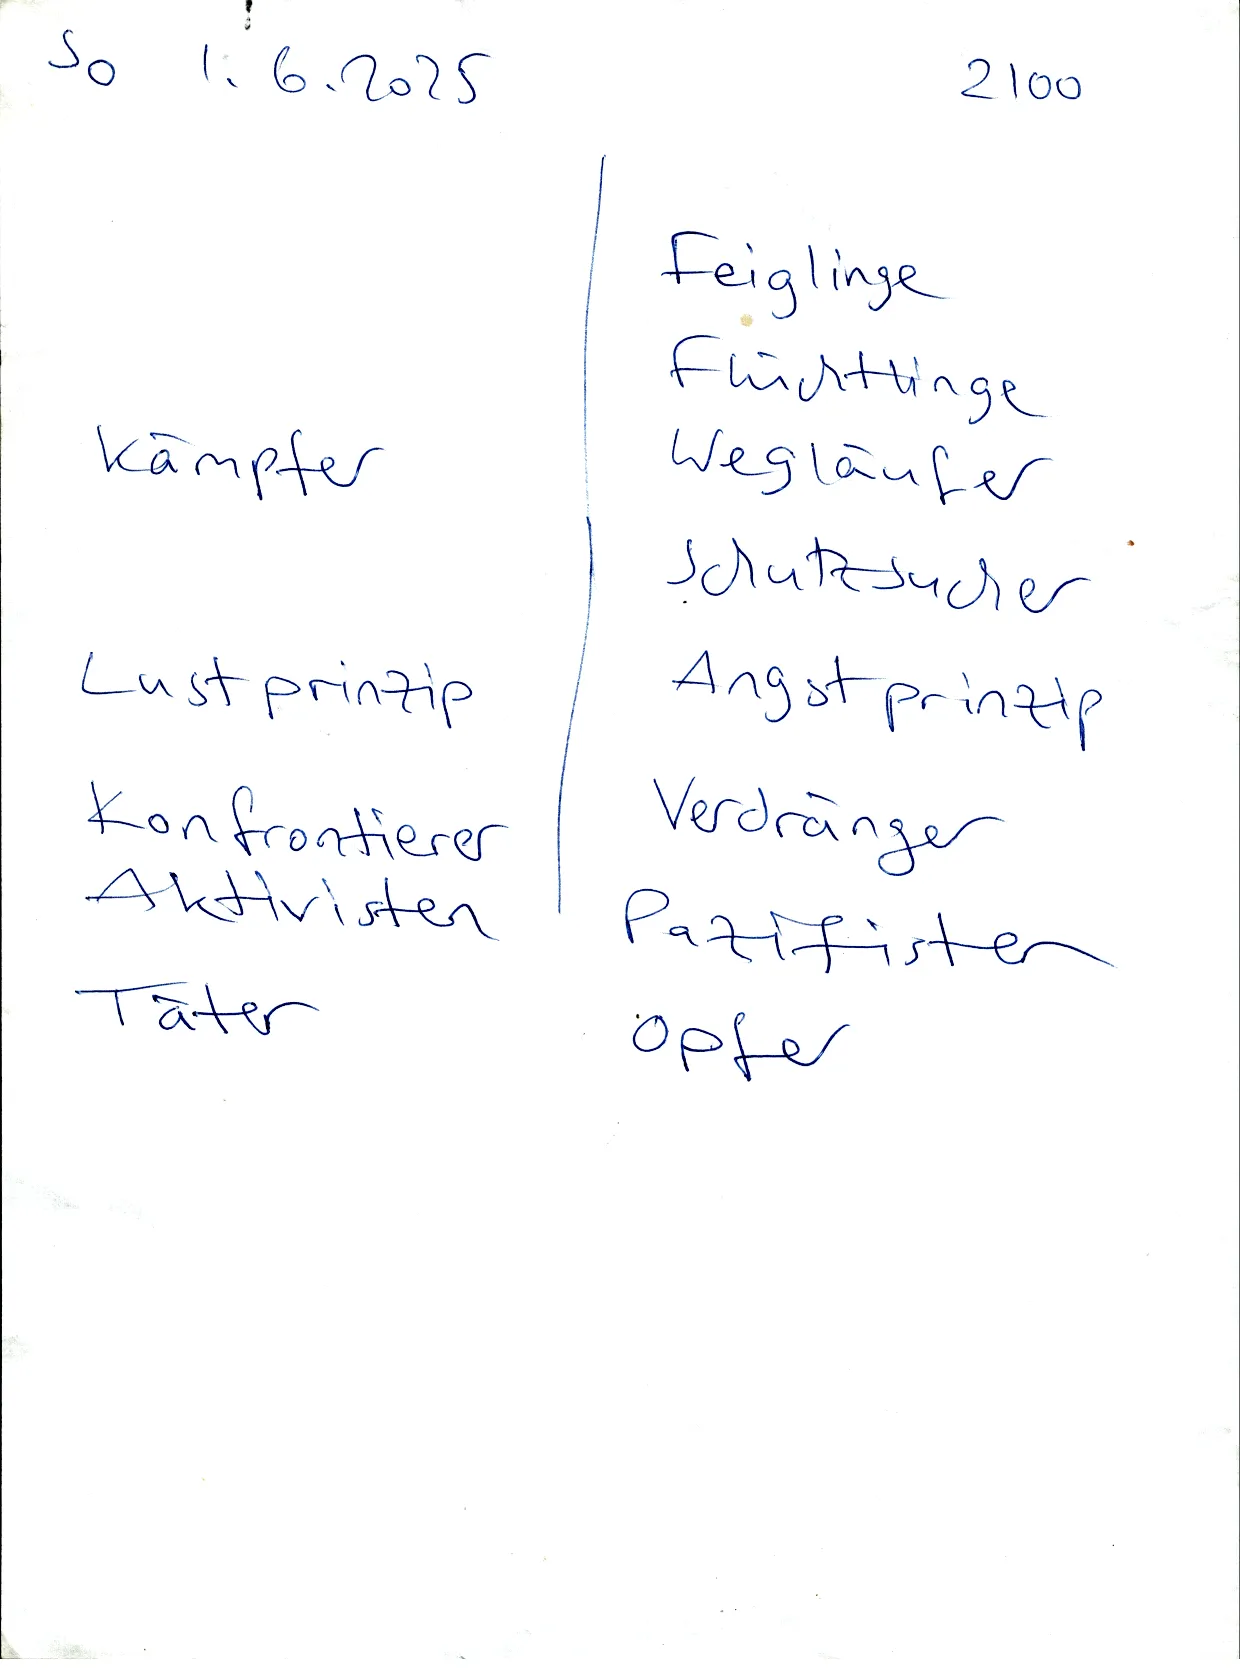 So 1.6.2025 2100
Feiglinge
Flüchtlinge
Kämpfer Wegläufer
Schutzsucher
Lustprinzip Angstprinzip
Konfrontierer Verdränger
Aktivisten Pazifisten
Täter Opfer